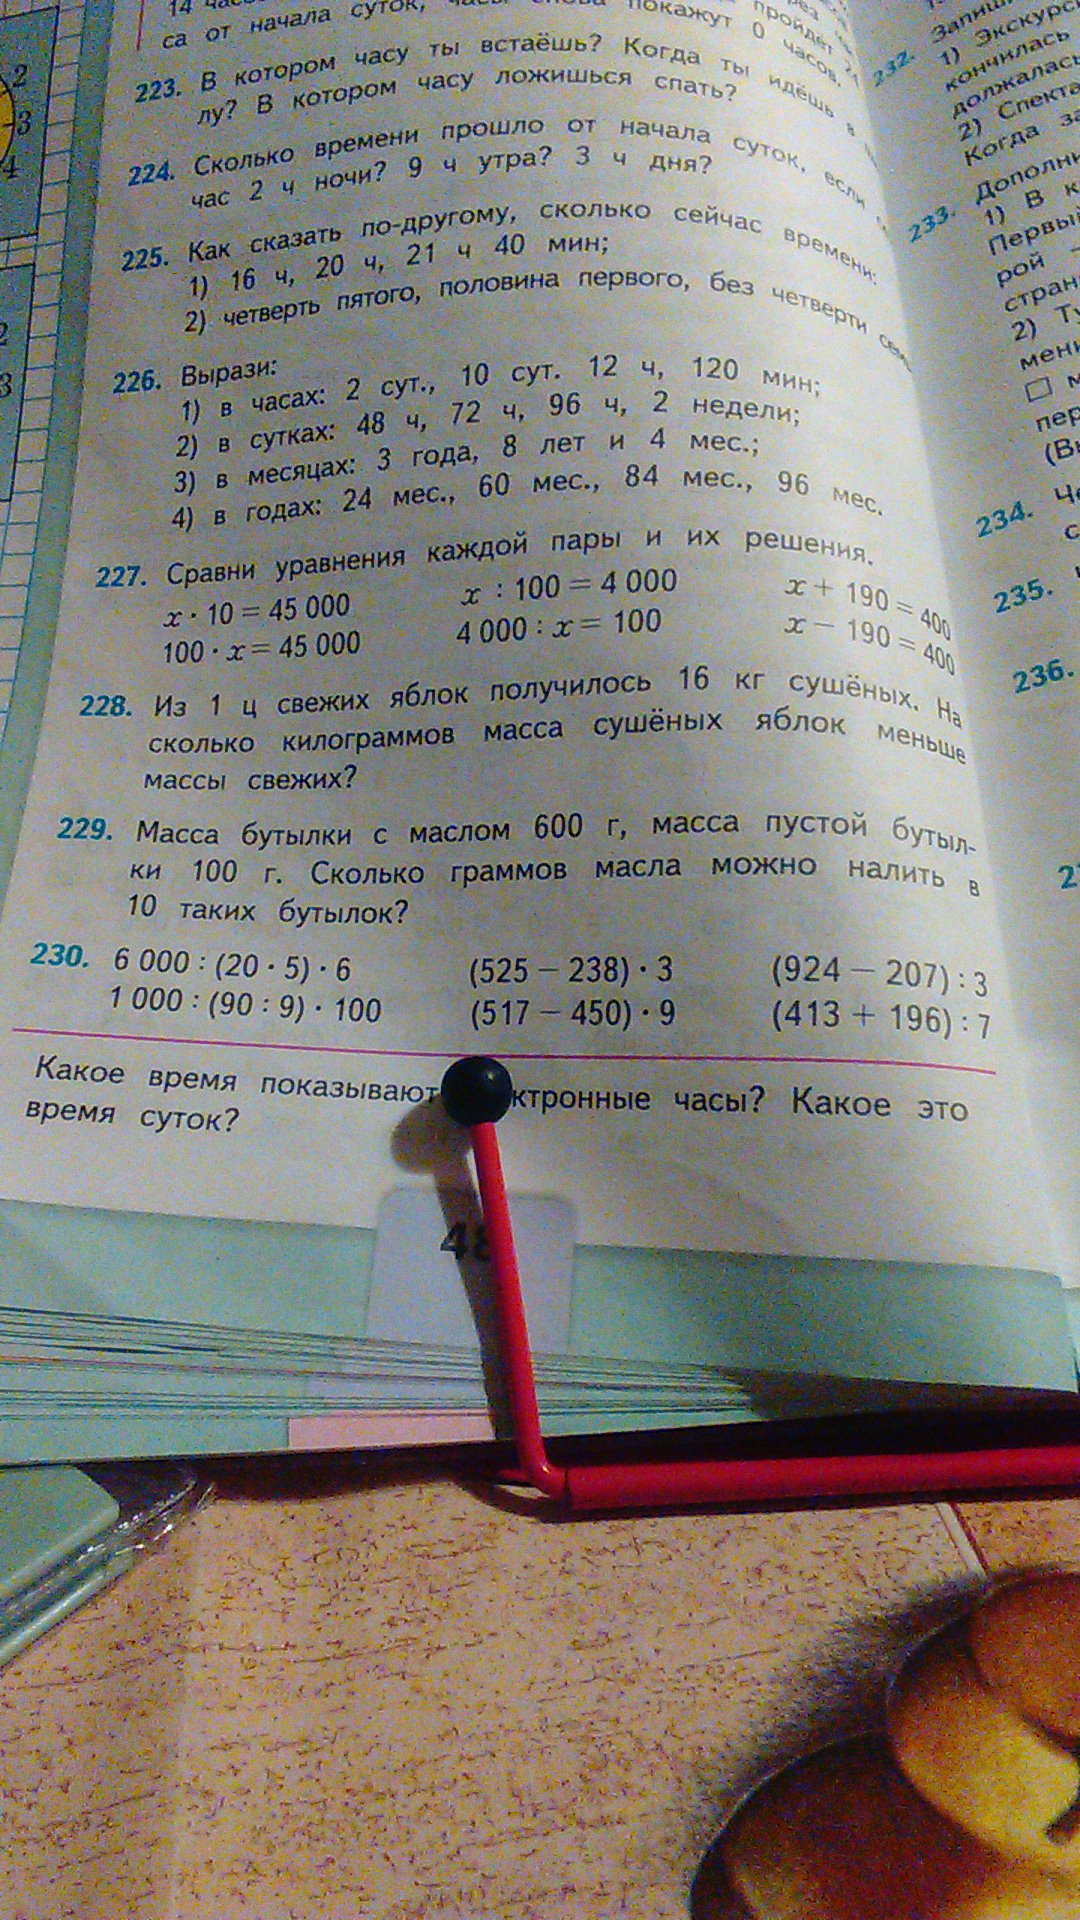 14
са от начала суток, покажут 0 часов.
223. В котором часу ты встаёшь? Когда ты идёшь в
лу? В котором часу ложишься спать?
224. Сколько времени прошло от начала суток, если
час 2 ч ночи? 9 ч утра? 3 ч дня?
225. Как сказать по-другому, сколько сейчас времени:
1) 16 ч, 20 ч, 21 ч 40 мин;
2) четверть пятого, половина первого, без четверти
226. Вырази:
1) в часах: 2 сут., 10 сут. 12 ч, 120 мин;
2) в сутках: 48 ч, 72 ч, 96 ч, 2 недели;
3) в месяцах: 3 года, 8 лет и 4 мес.;
4) в годах: 24 мес., 60 мес., 84 мес., 96 мес.
227. Сравни уравнения каждой пары и их решения.
x · 10 = 45 000 x : 100 = 4 000 x + 190 = 400
100 · x = 45 000 4 000 : x = 100 x − 190 = 400
228. Из 1 ц свежих яблок получилось 16 кг сушёных. На
сколько килограммов масса сушёных яблок меньше
массы свежих?
229. Масса бутылки с маслом 600 г, масса пустой бутыл-
ки 100 г. Сколько граммов масла можно налить в
10 таких бутылок?
230. 6 000 : (20 · 5) · 6 (525 − 238) · 3 (924 − 207) : 3
1 000 : (90 : 9) · 100 (517 − 450) · 9 (413 + 196) : 7
Какое время показывают ктронные часы? Какое это
время суток?
48
2
3
4
2
3
232.
1)
кончилась
2)
Когда
233.
1) В
2)
234.
235.
236.